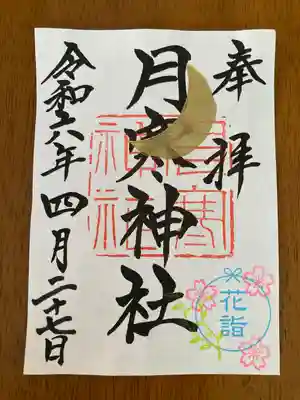 奉拝
月寒神社
令和六年四月二十七日
月寒
神社
花詣